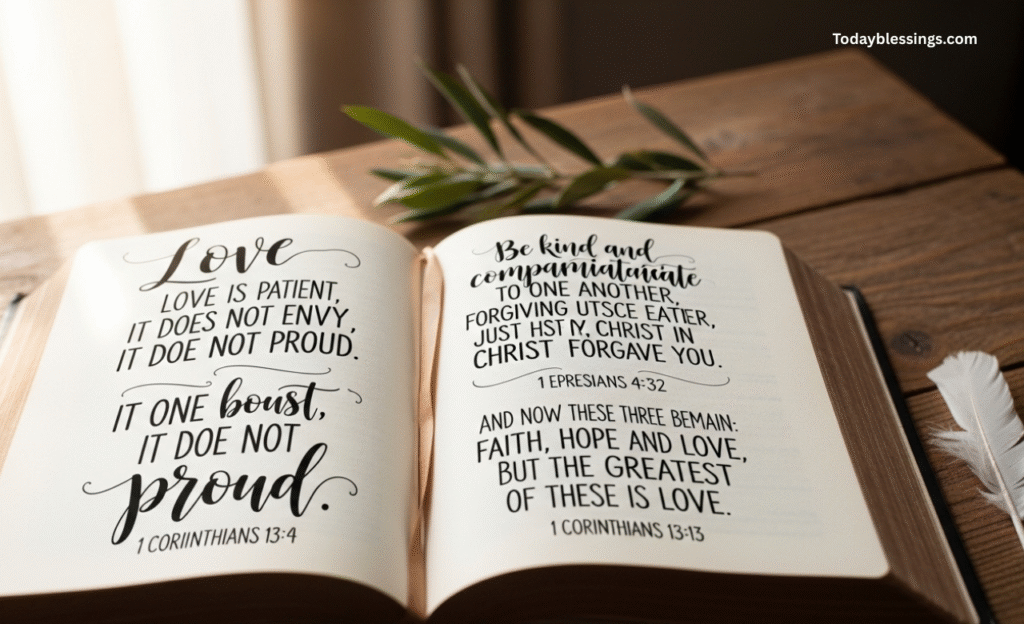 Todayblessings.com
Love
LOVE IS PATIENT,
IT DOES NOT ENVY,
IT DOE NOT PROUD.
IT ONE boust,
IT DOE NOT
proud.
1 CORIINTHIANS 13:4
Be kind and
TO ONE ANOTHER,
FORGIVING UTSCE EATIER,
JUST HST IY, CHRIST IN
CHRIST FORGAVE YOU.
1 EPRESIANS 4:32
AND NOW THESE THREE BEMAIN:
FAITH, HOPE AND LOVE,
BUT THE GREATEST
OF THESE IS LOVE.
1 CORINTHIANS 13:13